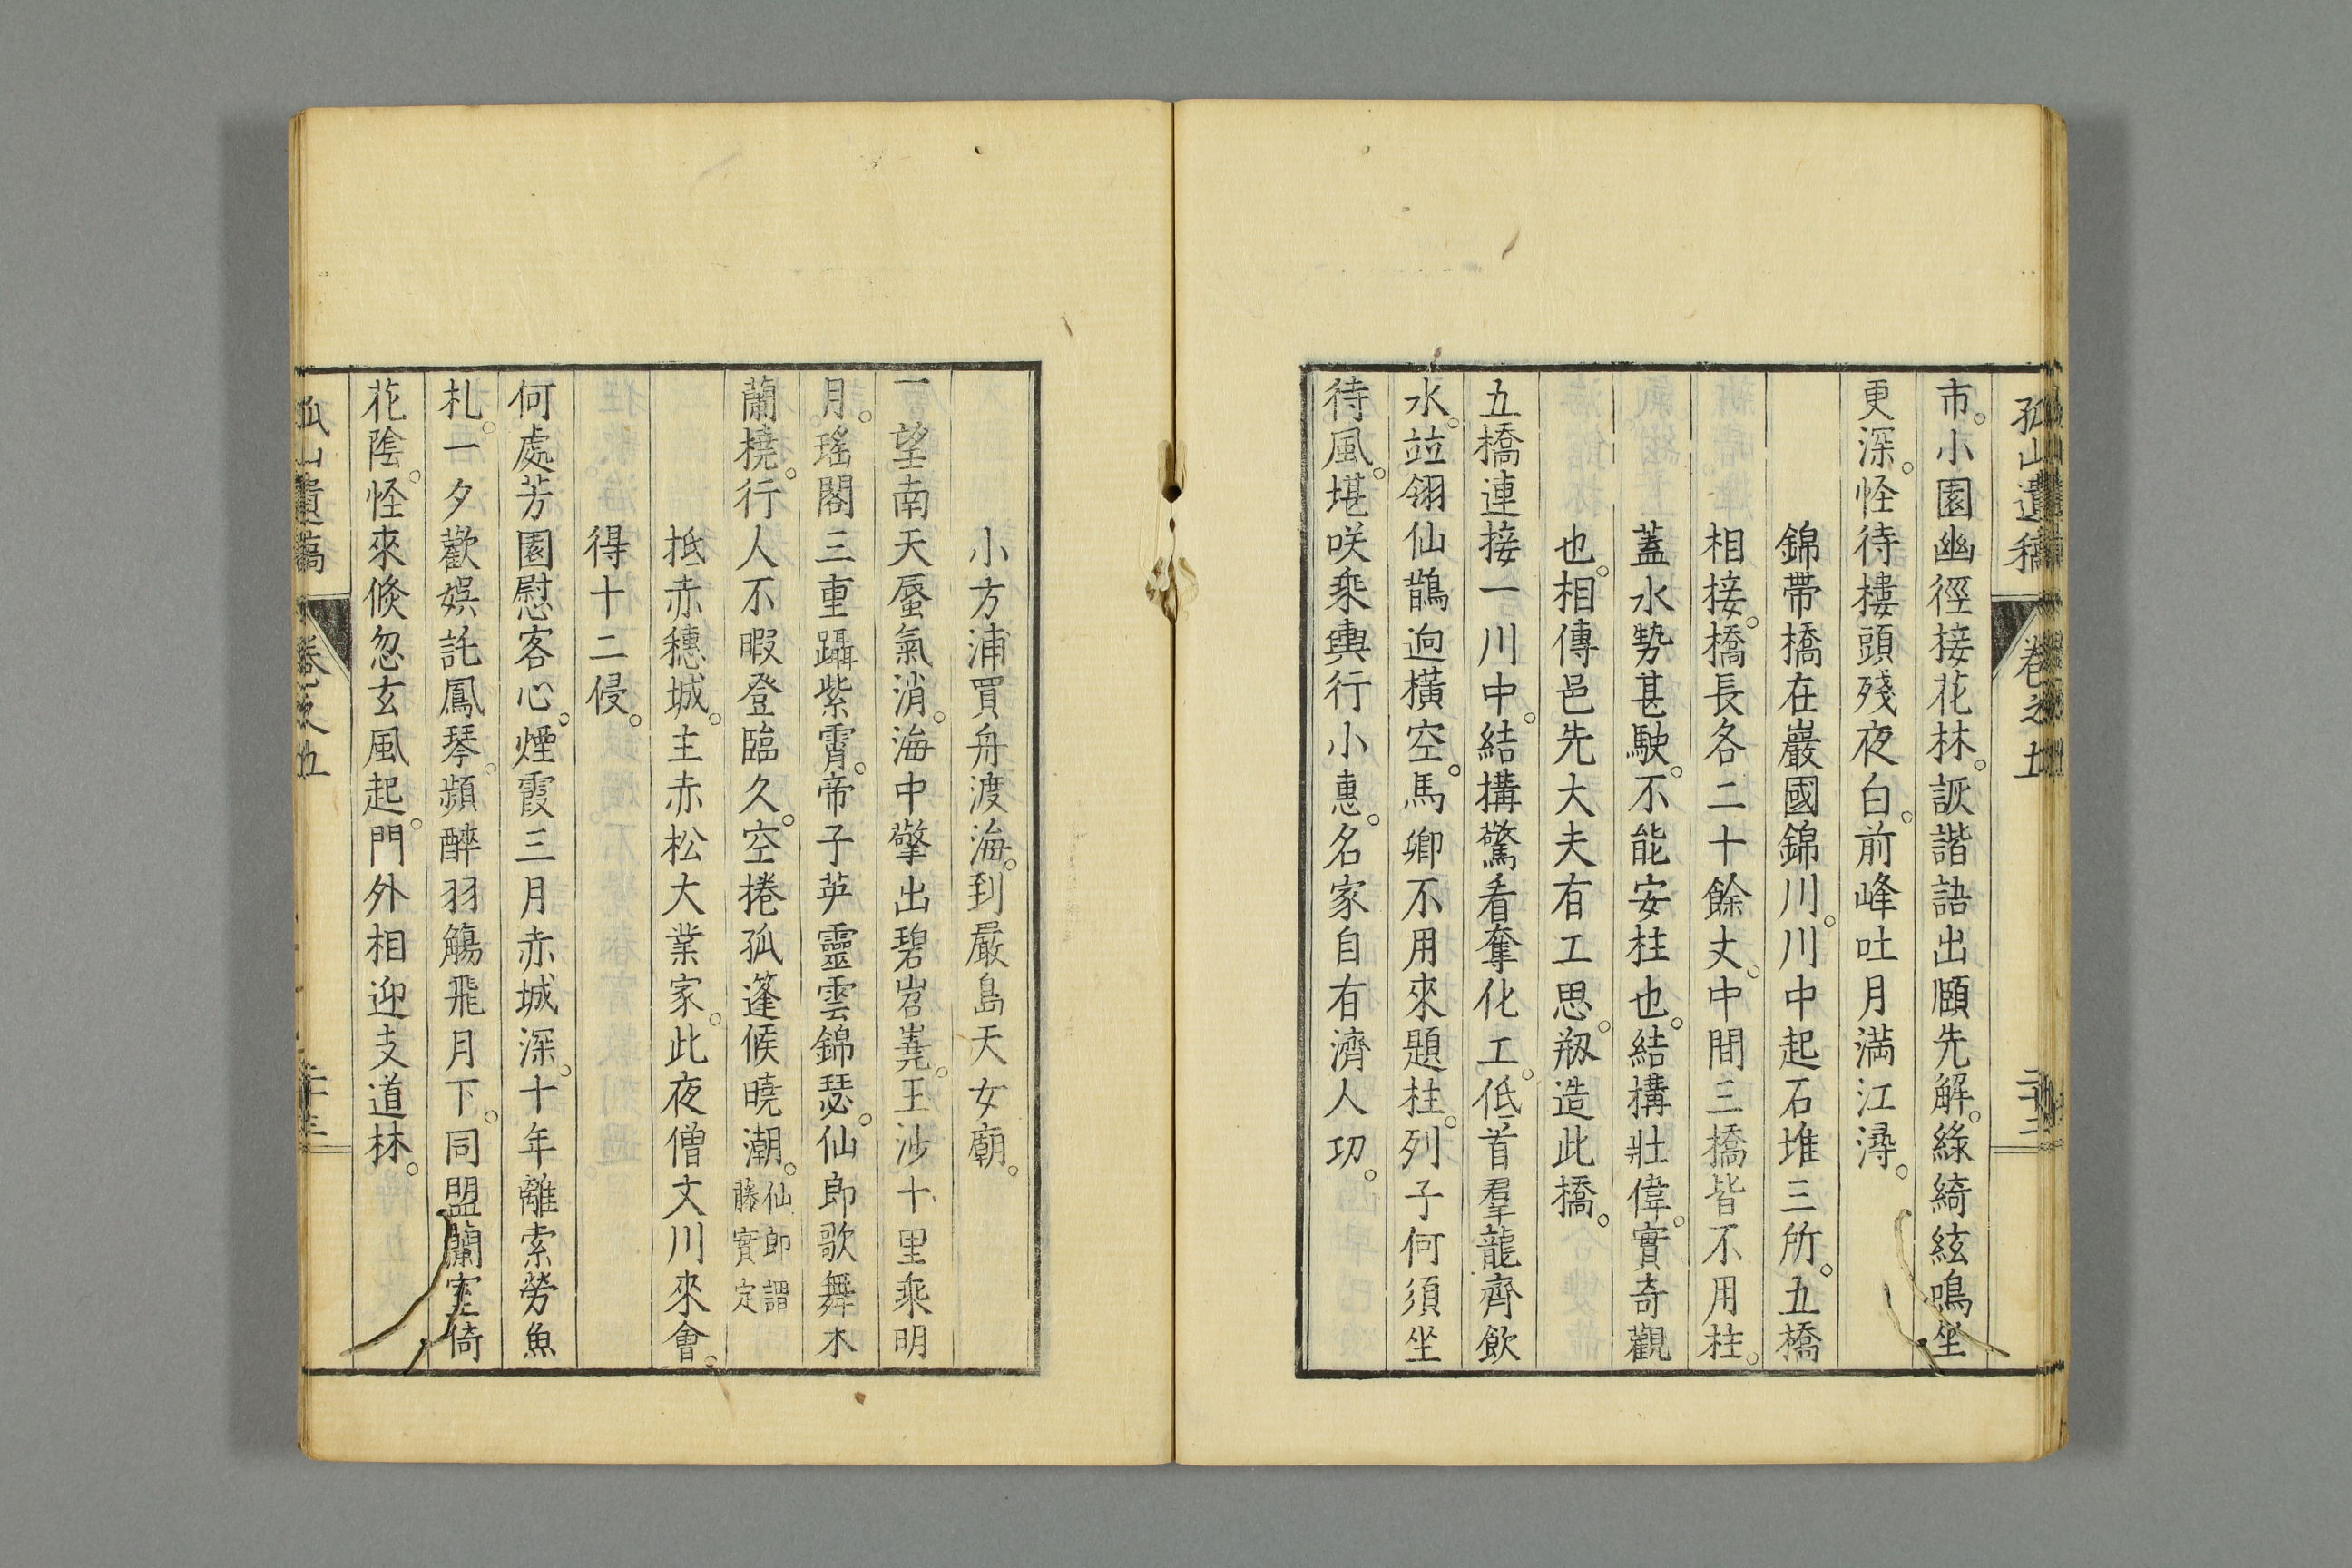 孤山遺稿 卷之五
市。小園幽徑接花林。詼諧語出頤先解。綠綺絃鳴坐
更深。怪待樓頭殘夜白。前峰吐月満江潯。
錦帶橋在巖國錦川。川中起石堆三所。五橋
相接。橋長各二十餘丈。中間三橋皆不用柱。
蓋水勢甚駛。不能安柱也。結構壯偉。實奇觀
也。相傳邑先大夫有工思。剏造此橋。
五橋連接一川中。結構驚看奪化工。低首羣龍齊飲
水。竝翎仙鵲逈橫空。馬卿不用來題柱。列子何須坐
待風。堪咲乘輿行小惠。名家自有濟人功。
小方浦買舟渡海。到嚴島天女廟。
一望南天蜃氣消。海中擎出碧岧嶤。王渉十里乘明
月。瑤閣三重躡紫霄。帝子英靈雲錦瑟。仙郎歌舞木
蘭橈。行人不暇登臨久。空捲孤篷候曉潮。仙郎謂藤實定
抵赤穗城。主赤松大業家。此夜僧文川來會。
得十二侵。
何處芳園慰客心。煙霞三月赤城深。十年離索勞魚
札。一夕歡娯託鳳琴。頻醉羽觴飛月下。同盟蘭室倚
花陰。怪來倏忽玄風起。門外相迎支道林。
孤山遺稿 卷之五